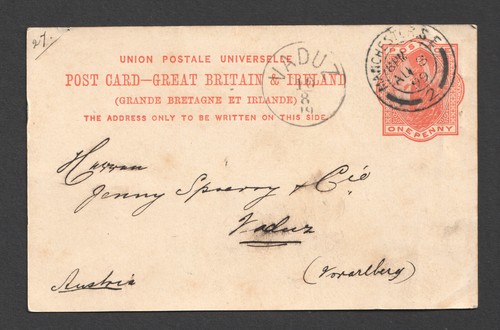 27.
UNION POSTALE UNIVERSELLE
POST CARD—GREAT BRITAIN & IRELAND
(GRANDE BRETAGNE ET IRLANDE)
THE ADDRESS ONLY TO BE WRITTEN ON THIS SIDE.
VADUZ
MANCHESTER S.E.
2
ONE PENNY
Herren
Jenny Spoerry & Cie
Vaduz
(Vorarlberg)
Austria